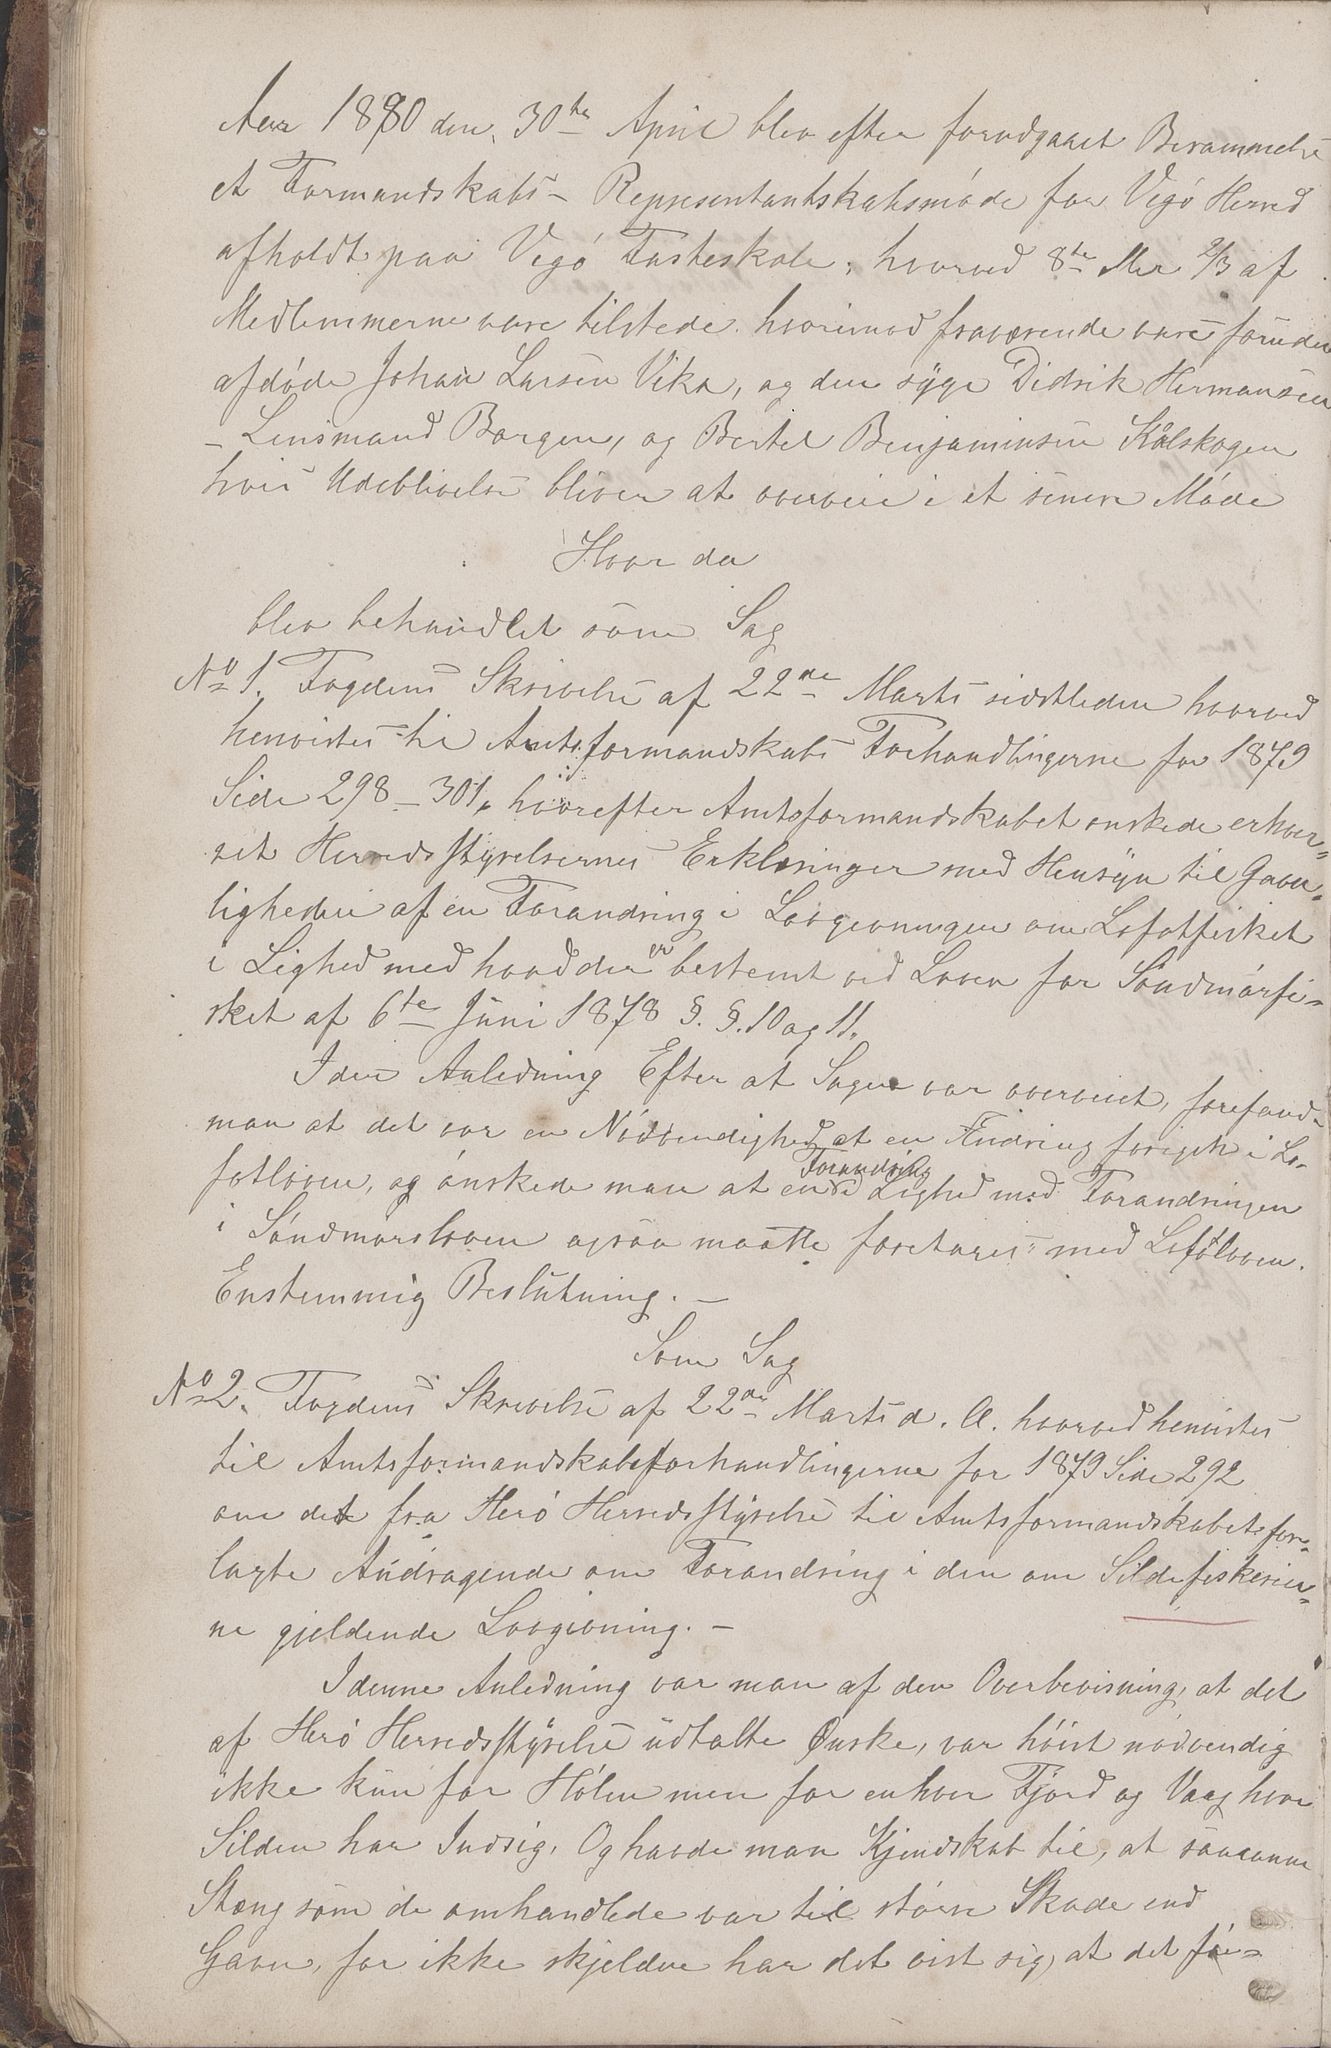 Aar 1880 den 30te April blev efter forudgaaet Berammelse
et Formandskabs- Representantskabsmøde for Vegø Herred
afholdt paa Vegø Fasteskole, hvorved 8te eller 2/3 af
Medlemmerne vare tilstede. hvorimod fraværende vare foruden
afdøde Johan Larsen Vika, og den syge Didrik Hermansen
- Lensmand Borgen, og Bertel Benjaminsen Kålskogen
hvis Udeblivelse bliver at overveie i et senere Møde
Hvor da
blev behandlet som Sag
No 1. Fogdens Skrivelse af 22de Marts sidstleden hvorved
henvistes til Amtsformandskabs Forhandlingerne for 1879
Side 298 - 301, hvorefter Amtsformandskabet ønskede erhver-
vet Herredsstyrelsernes Erklæringer med Hensyn til Gavn-
ligheden af en Forandring i Lovgivningen om Lofotfisket
i Lighed med hvad der er bestemt ved Loven for Søndmørfi-
sket af 6te Juni 1878 §. §. 10 og 11.
I den Anledning Efter at Sagen var overveiet, forefand-
man at det var en Nødvendighed at en Ændring foregik i Lo-
fotloven, og ønskede man at en Forandring i Lighed med Forandringen
i Søndmørsloven ogsaa maatte foretages med Lofotloven.
Enstemmig Beslutning. -
Som Sag
No 2. Fogdens Skrivelse af 22de Marts d. A. hvorved henvistes
til Amtsformandskabsforhandlingerne for 1879 Side 292
om det fra Herø Herredsstyrelse til Amtsformandskabet fore-
lagte Andragende om Forandring i den om Sildefiskerier-
ne gjeldende Lovgivning. -
I denne Anledning var man af den Overbevisning, at det
af Herø Herredsstyrelse udtalte Ønske, var høist nødvendig
ikke kun for Hølen men for enhver Fjord og Vaag hvor
Silden har Indsig. Og havde man Kjendskab til, at saadanne
Stæng som de omhandlede var til større Skade end
Gavn, for ikke skjelden har det vist sig, at det